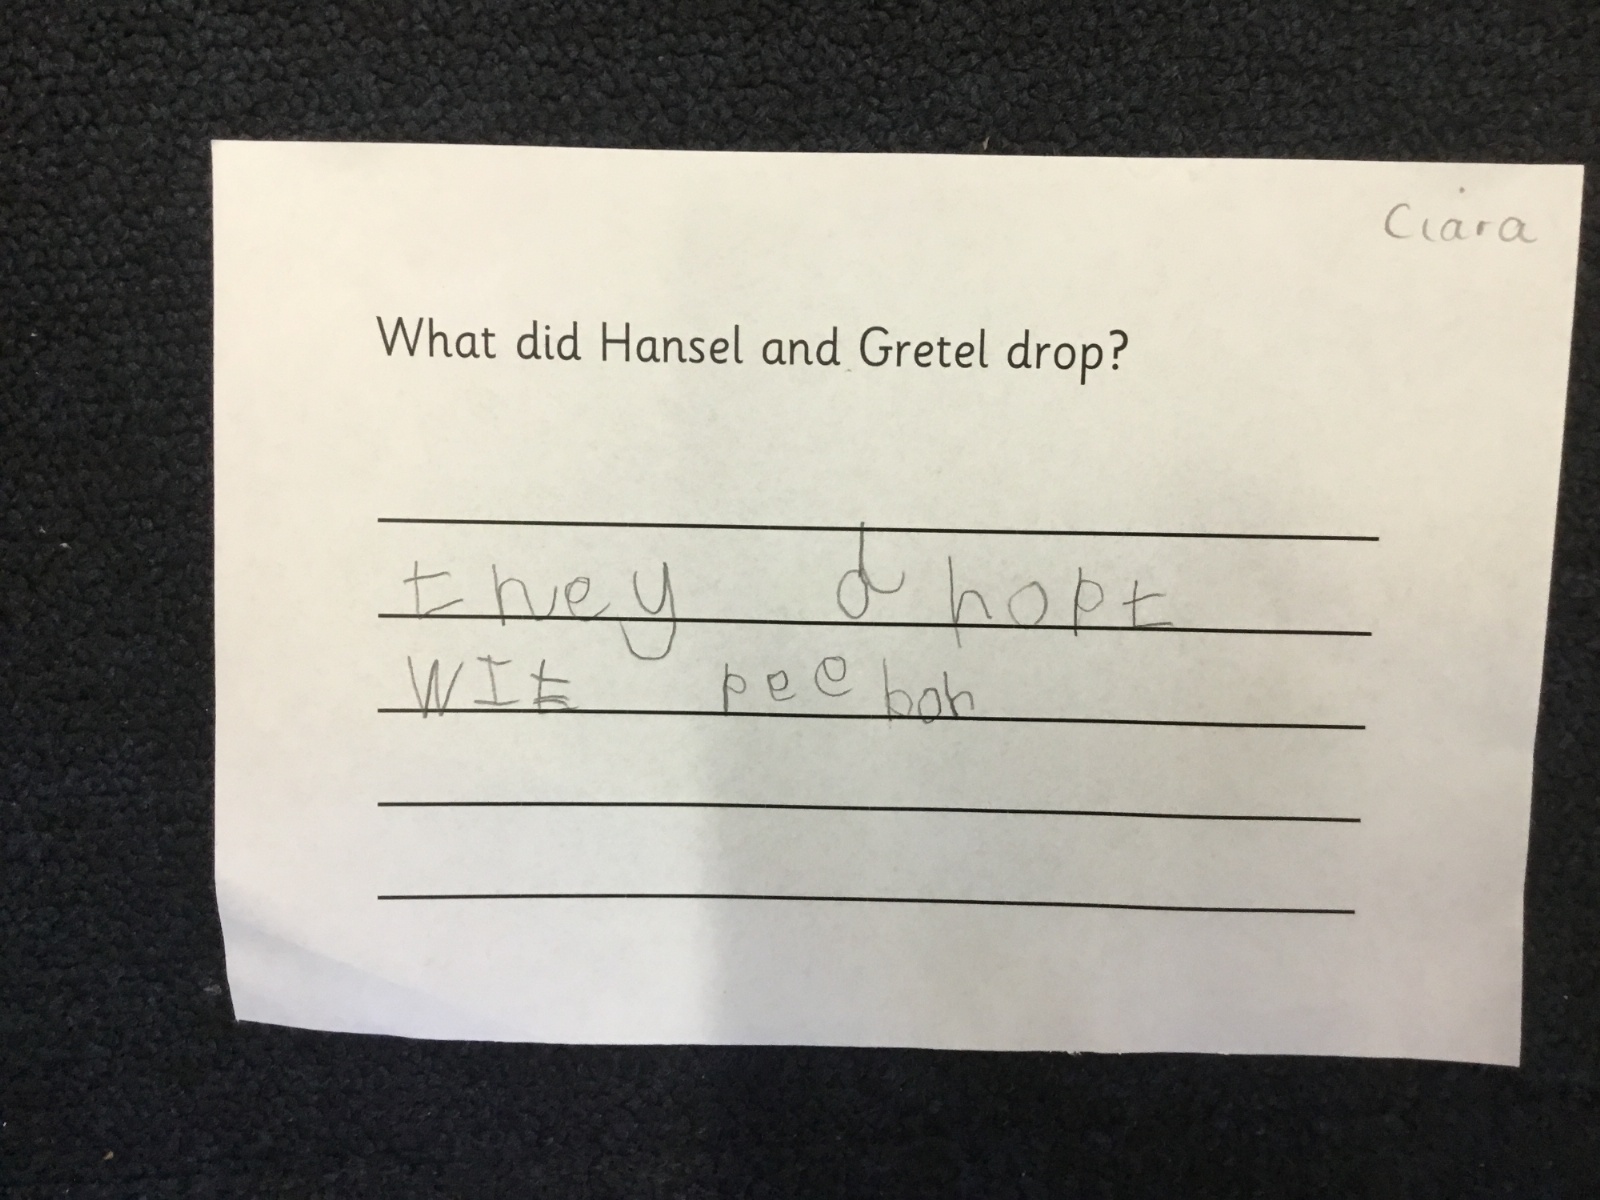 Ciara
What did Hansel and Gretel drop?
they dhopt
WIt peebon